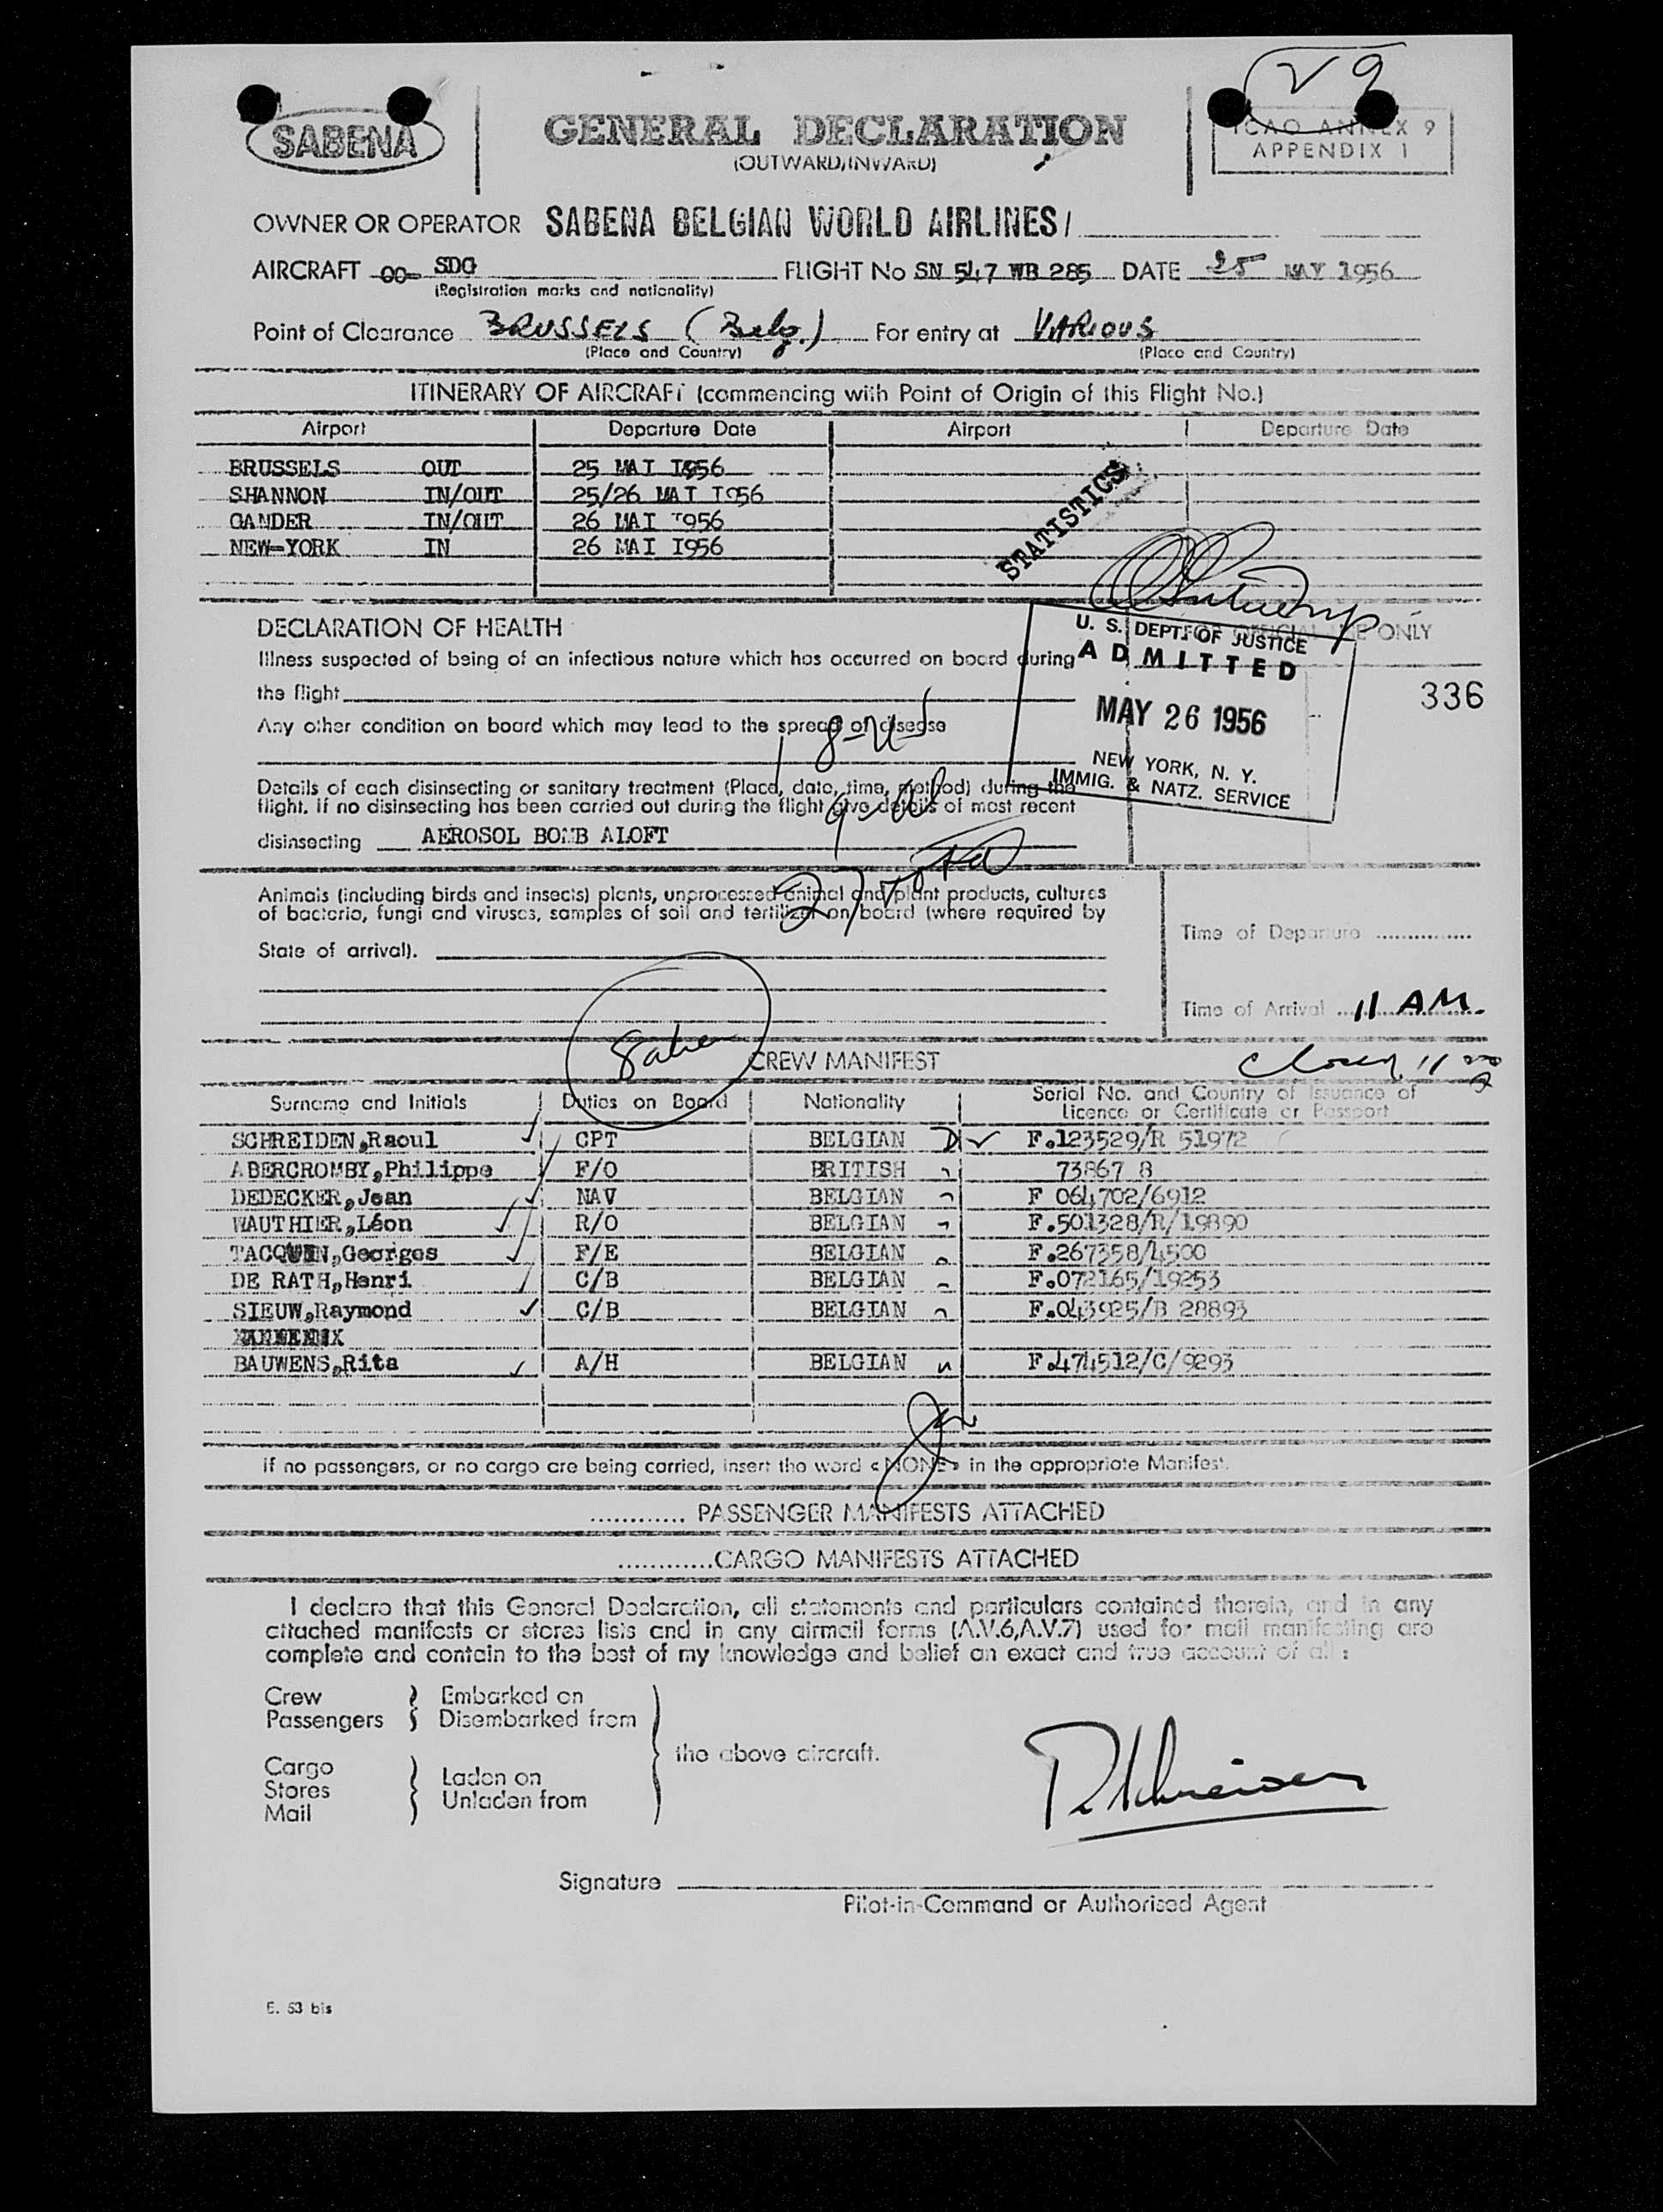 V 9
SABENA
GENERAL DECLARATION
(OUTWARD/INWARD)
ICAO ANNEX 9
APPENDIX 1
OWNER OR OPERATOR SABENA BELGIAN WORLD AIRLINES/
AIRCRAFT OO- SDG FLIGHT No SN 547 WB 285 DATE 25 MAY 1956
(Registration marks and nationality)
Point of Clearance BRUSSELS (Belg.) For entry at VARIOUS
(Place and Country) (Place and Country)
ITINERARY OF AIRCRAFT (commencing with Point of Origin of this Flight No.)
Airport Departure Date Airport Departure Date
BRUSSELS OUT 25 MAI I956
SHANNON IN/OUT 25/26 MAI I956
GANDER IN/OUT 26 MAI I956
NEW-YORK IN 26 MAI I956
STATISTICS
DECLARATION OF HEALTH
FOR OFFICIAL USE ONLY
Illness suspected of being of an infectious nature which has occurred on board during
the flight
Any other condition on board which may lead to the spread of disease
Details of each disinsecting or sanitary treatment (Place, date, time, method) during the
flight. If no disinsecting has been carried out during the flight give details of most recent
disinsecting AEROSOL BOMB ALOFT
U. S. DEPT. OF JUSTICE
ADMITTED
MAY 26 1956
NEW YORK, N. Y.
IMMIG. & NATZ. SERVICE
336
Animals (including birds and insects) plants, unprocessed animal and plant products, cultures
of bacteria, fungi and viruses, samples of soil and fertilizer on board (where required by
State of arrival).
Time of Departure
Time of Arrival 11 AM
CREW MANIFEST
Surname and Initials Duties on Board Nationality Serial No. and Country of Issuance of
Licence or Certificate or Passport
SCHREIDEN,Raoul CPT BELGIAN F.123529/R 51972
ABERCROMBY,Philippe F/O BRITISH 73867 B
DEDECKER,Jean NAV BELGIAN F 064702/6912
WAUTHIER,Léon R/O BELGIAN F.501328/R/19890
TACQUIN,Georges F/E BELGIAN F.267358/4500
DE RATH,Henri C/B BELGIAN F.072165/19253
SIEUW,Raymond C/B BELGIAN F.043925/B 28893
BAUWENS,Rita A/H BELGIAN F.474512/C/9293
If no passengers, or no cargo are being carried, insert the word «NONE» in the appropriate Manifest.
............ PASSENGER MANIFESTS ATTACHED
............CARGO MANIFESTS ATTACHED
I declare that this General Declaration, all statements and particulars contained therein, and in any
attached manifests or stores lists and in any airmail forms (A.V.6,A.V.7) used for mail manifesting are
complete and contain to the best of my knowledge and belief an exact and true account of all :
Crew Embarked on
Passengers Disembarked from
the above aircraft.
Cargo
Stores Laden on
Mail Unladen from
Signature
Pilot-in-Command or Authorised Agent
E. 53 bis